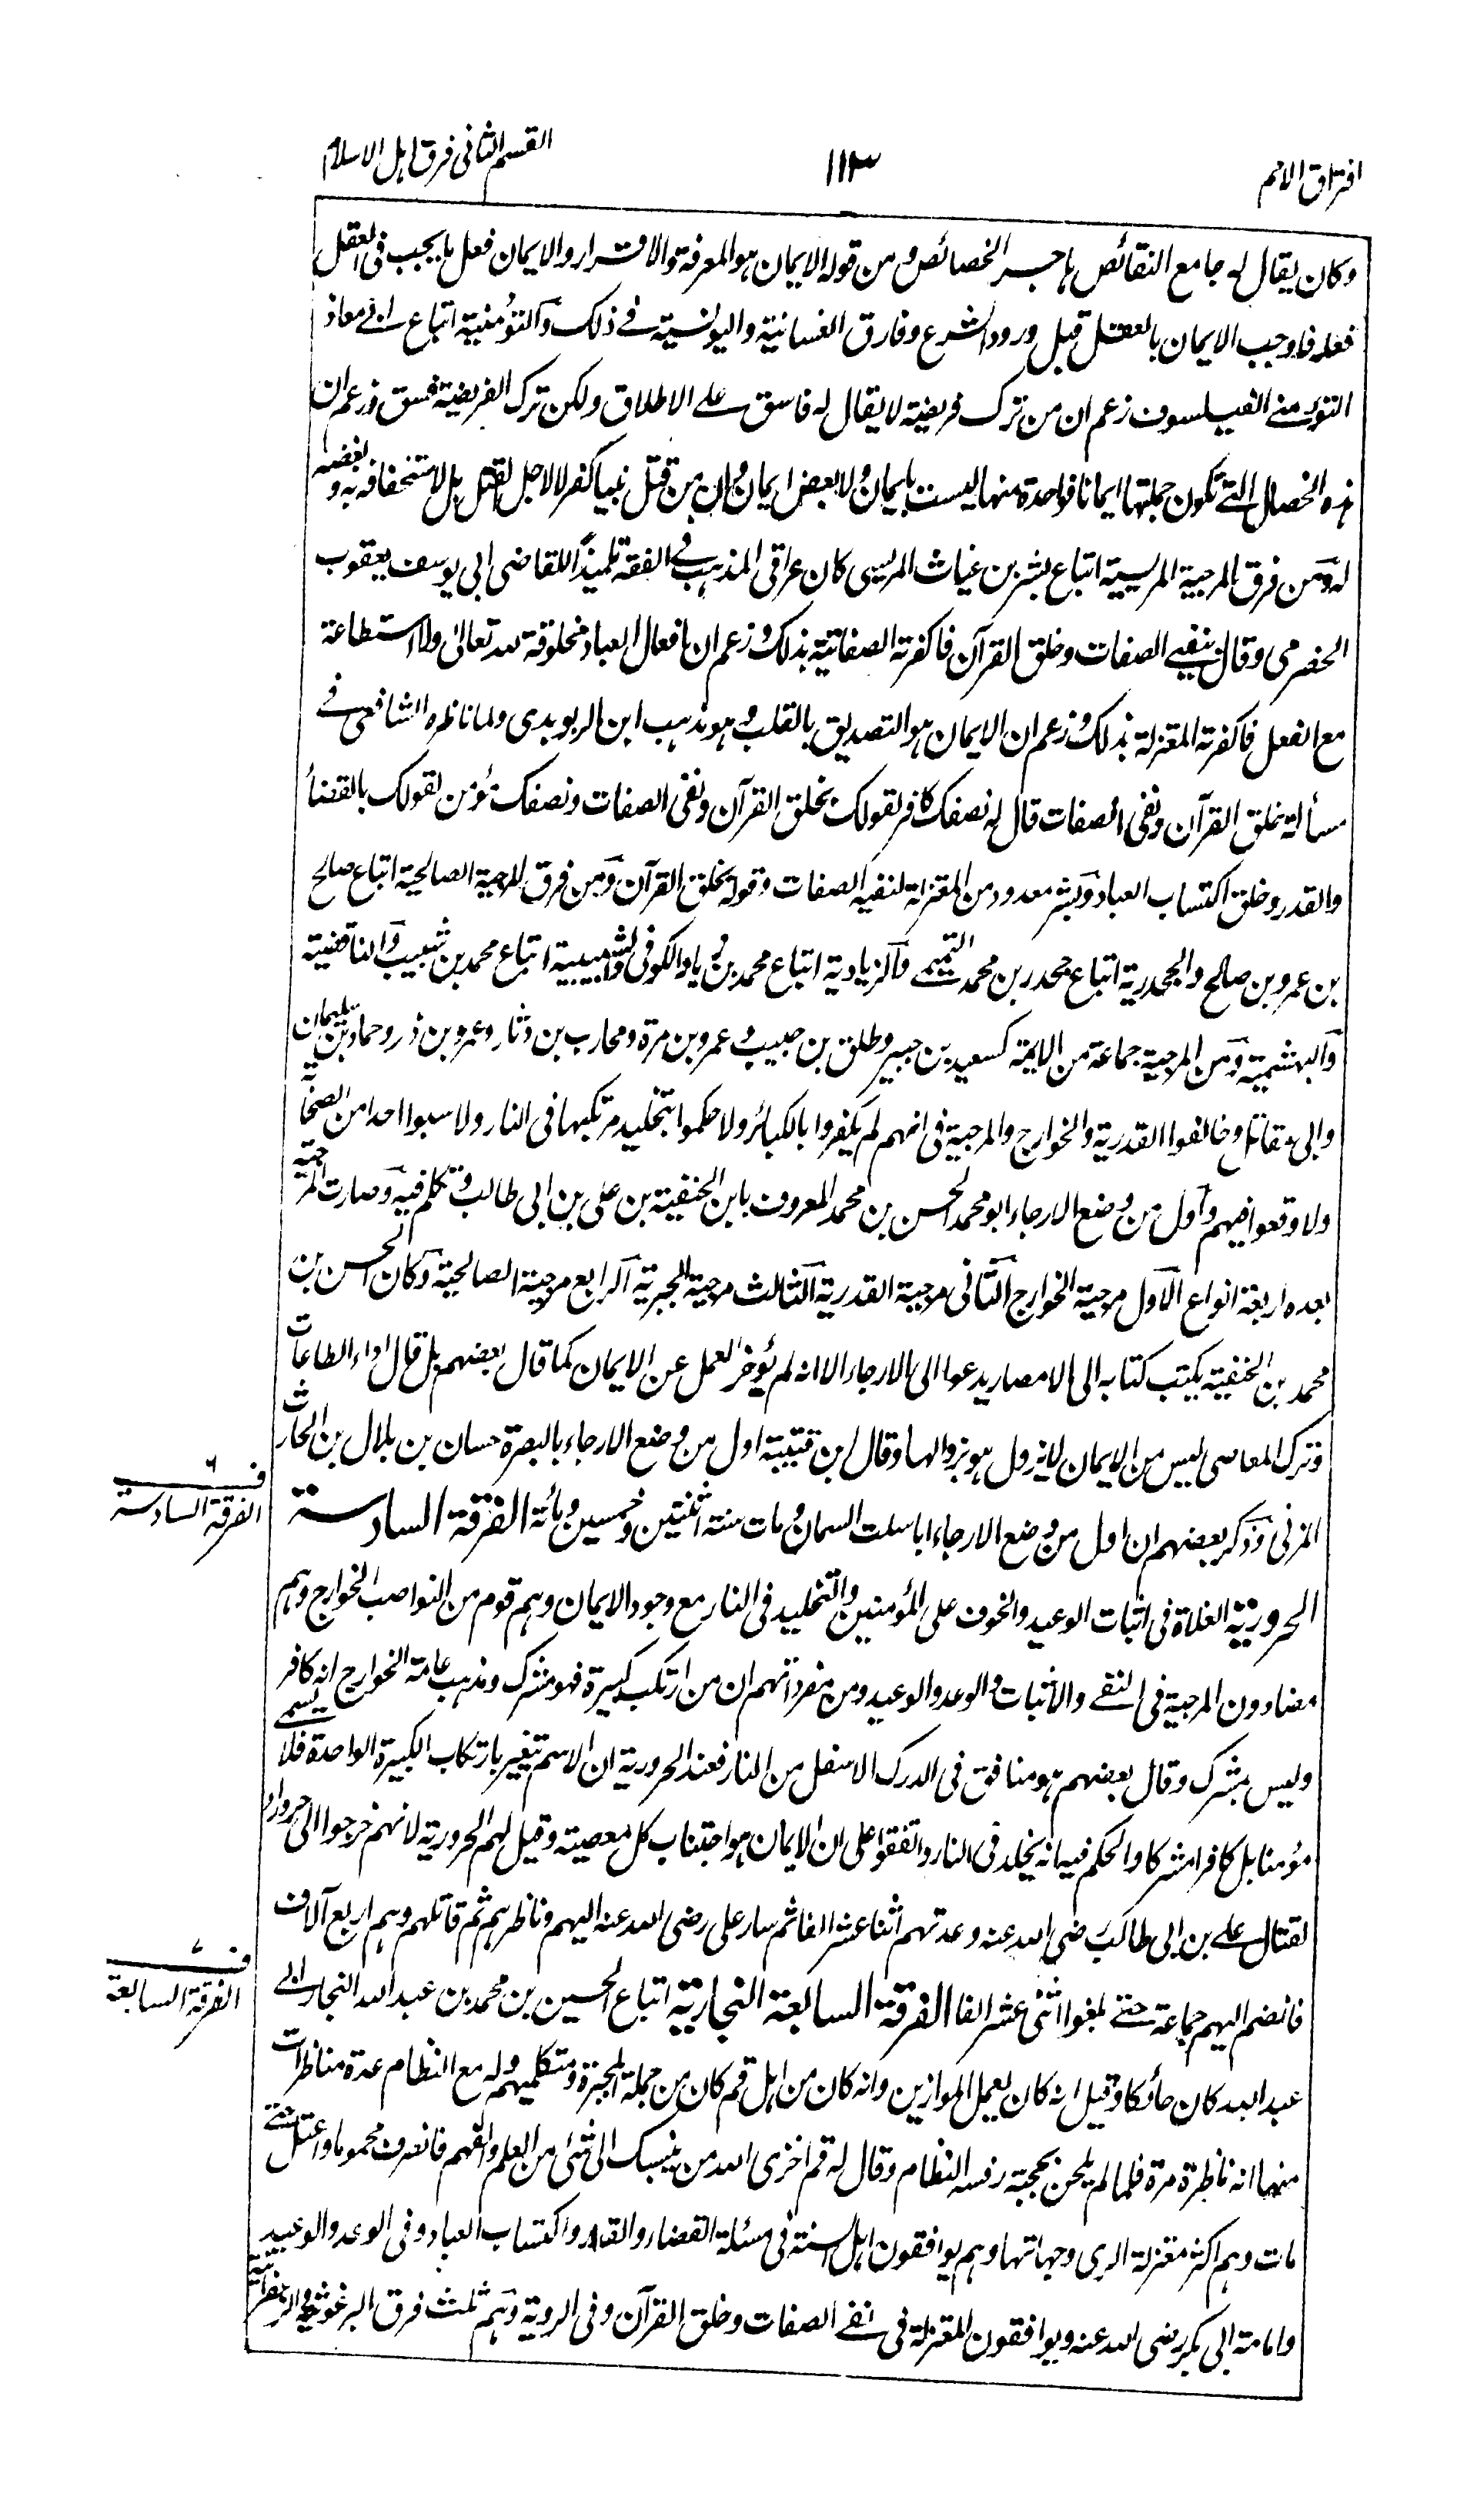 افتراق الامم
١١٣
القسم الثانی فرق اہل الاسلام
وکان یقال لہ جامع النقائص ہاجر الخصائص ومن قولہ الایمان ہو المعرفۃ والاقرار والایمان فعل ما یجب فی العقل
فعلہ فاوجب الایمان بالعقل قبل ورود الشرع وفارق الغسانیۃ والیونسیۃ فی ذلک والتؤمنیۃ اتباع ابی معاذ
التؤمنی الفیلسوف زعم ان من ترک فریضۃ لا یقال لہ فاسق علی الاطلاق ولکن ترک الفریضۃ فسق وزعم ان
ہذہ الخصال التی تکون جملتہا ایمانا فواحدۃ منہا لیست بایمان ولا بعض ایمان وان من قتل نبیا کفر لا لاجل القتل بل لاستخفافہ بہ وبغضہ
لہ ومن فرق المرجیۃ المریسیۃ اتباع بشر بن غیاث المریسی کان عراقی المذہب فی الفقہ تلمیذا للقاضی ابی یوسف یعقوب
الحضرمی وقال بنفی الصفات وخلق القرآن فاکفرتہ الصفاتیۃ بذلک وزعم ان افعال العباد مخلوقۃ للہ تعالی ولا استطاعۃ
مع الفعل فاکفرتہ المعتزلۃ بذلک وزعم ان الایمان ہو التصدیق بالقلب وہو مذہب ابن الربوبدی ولما ناظرہ الشافعی فی
مسألۃ خلق القرآن ونفی الصفات قال لہ نصفک کافر لقولک بخلق القرآن ونفی الصفات ونصفک مؤمن لقولک بالقضأ
والقدر وخلق اکتساب العباد وبشر معدود من المعتزلۃ لنفیہ الصفات وقولہ بخلق القرآن ومن فرق المرجیۃ الصالحیۃ اتباع صالح
بن عمرو بن صالح والجحدریۃ اتباع جحدر بن محمد التمیمی والزیادیۃ اتباع محمد بن زیاد الکوفی والشبیبیۃ اتباع محمد بن شبیب والناقضیۃ
والبہشمیۃ ومن المرجیۃ جماعۃ من الایمۃ کسعید بن جبیر وطلق بن حبیب وعمرو بن مرۃ ومحارب بن دثار وعمرو بن ذر وحماد بن سلیمان
وابی مقاتل وخالفوا القدریۃ والخوارج والمرجیۃ فی انہم لم یکفروا بالکبائر ولا حکموا بتخلید مرتکبہا فی النار ولا سبوا احدا من الصحابۃ
ولا وقعوا فیہم واول من وضع الارجاء ابو محمد الحسن بن محمد المعروف بابن الحنفیۃ بن علی بن ابی طالب وتکلم فیہ وصارت المرجیۃ
بعدہ اربعۃ انواع الاول مرجیۃ الخوارج الثانی مرجیۃ القدریۃ الثالث مرجیۃ الجبریۃ الرابع مرجیۃ الصالحیۃ وکان الحسن بن
محمد بن الحنفیۃ یکتب کتابہ الی الامصار یدعوا الی الارجاء الا انہ لم یؤخر العمل عن الایمان کما قال بعضہم بل قال اداء الطاعات
وترک المعاصی لیس من الایمان لا یزول ہو بزوالہا وقال ابن قتیبۃ اول من وضع الارجاء بالبصرۃ حسان بن بلال بن الحارث
المزنی وذکر بعضہم ان اول من وضع الارجاء ابا سلت السمان ومات سنۃ اثنتین وخمسین ومائۃ الفرقۃ السادسۃ
ف ٦
الفرقۃ السادسۃ
الحروریۃ الغلاۃ فی اثبات الوعید والخوف علی المؤمنین والتخلید فی النار مع وجود الایمان وہم قوم من النواصب الخوارج وہم
مضادون المرجیۃ فی النفی والاثبات والوعد والوعید ومن مفرداتہم ان من ارتکب کبیرۃ فہو مشرک ومذہب عامۃ الخوارج انہ کافر
ولیس بمشرک وقال بعضہم ہو منافق فی الدرک الاسفل من النار فعند الحروریۃ ان الاسم تغیر بارتکاب الکبیرۃ الواحدۃ فلا یسمی
مؤمنا بل کافرا مشرکا والحکم فیہ انہ یخلد فی النار واتفقوا علی ان الایمان ہو اجتناب کل معصیۃ وقیل لہم الحروریۃ لانہم خرجوا الی حروراء
لقتال علی بن ابی طالب رضی اللہ عنہ وعدتہم اثنا عشر الفا ثم سار علی رضی اللہ عنہ الیہم وناظرہم ثم قاتلہم وہم اربع آلاف
فانضم الیہم جماعۃ حتی بلغوا اثنی عشر الفا الفرقۃ السابعۃ النجاریۃ اتباع الحسین بن محمد بن عبد اللہ النجار ابی
ف ٧
الفرقۃ السابعۃ
عبد اللہ کان حائکا وقیل انہ کان یعمل الموازین وانہ کان من اہل قم کان من جملۃ المجبرۃ ومتکلمیہم ولہ مع النظام عدۃ مناظرات
منہا انہ ناظرہ مرۃ فلما لم یلحن بحجتہ رفسہ النظام وقال لہ قم اخزی اللہ من ینسبک الی شئ من العلم والفہم فانصرف محموما واعتل حتی
مات وہم اکثر معتزلۃ الری وجہاتہا وہم یوافقون اہل السنۃ فی مسئلۃ القضاء والقدر واکتساب العباد وفی الوعد والوعید
وامامۃ ابی بکر رضی اللہ عنہ ویوافقون المعتزلۃ فی نفی الصفات وخلق القرآن وفی الرویۃ وہم ثلث فرق البرغوثیۃ والزعفرانیۃ